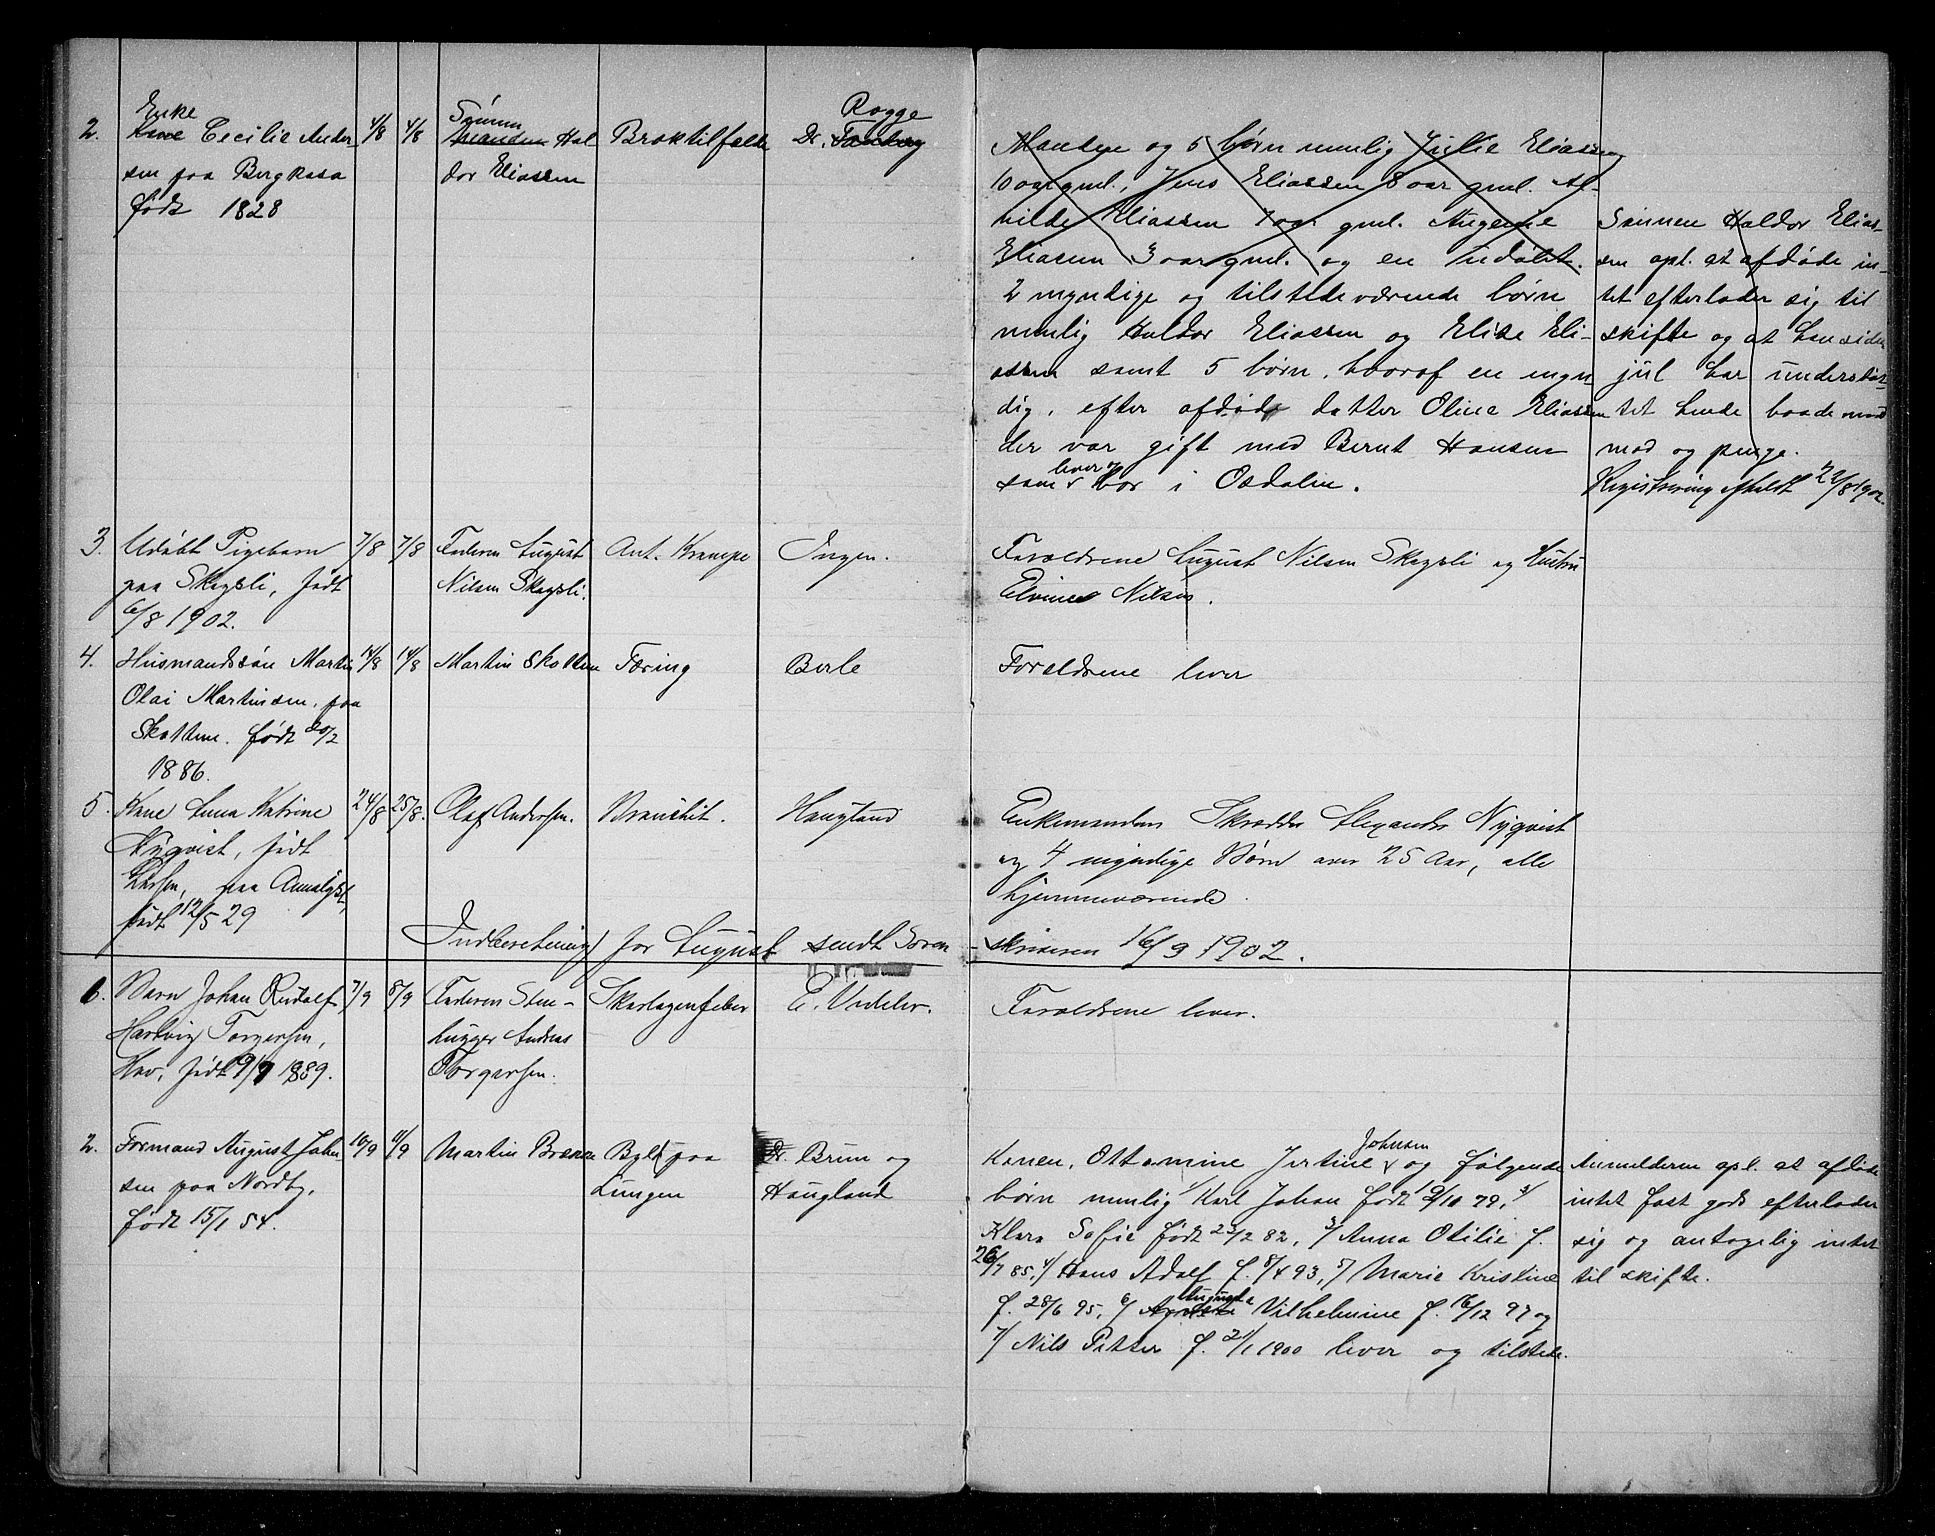 2.
Enke
Kone Cecilie Ander
sen paa Bergkasa
født 1828
4/8
4/8
Sønnen
Manden Hal
dor Eliassen
Broktilfælde
Rogge
Dr.
Manden og 5 børn nemlig Julie Eliassen
10 aar gml., Jens Eliassen 8 aar gml. Al-
vilde Eliassen 7 aar gml. Augenie
Eliassen 3 aar gml. og en udøbt.
2 myndige og tilstedeværende børn
nemlig Haldor Eliassen og Elise Eli-
assen samt 5 børn, hvoraf en myn-
dig, efter afdøde datter Oline Eliassen
der var gift med Bernt Hansen
som lever og bor i Osdalen.
Sønnen Haldor Elias-
sen opl. at afdøde in-
tet efterlader sig til
skifte og at han siden
jul har understøt-
tet hende baade med
mad og penge.
Registrering afholdt 22/8 1902.
3.
Udøbt Pigebarn
paa Skagsli, født
6/8 1902.
7/8
7/8
Faderen August
Nilsen Skagsli.
Ant. Krampe
Ingen.
Forældrene August Nilsen Skagsli og Hustru
Elvine Nilsen.
4.
Husmandssøn Martin
Olai Martinsen, paa
Skotten. født 20/2
1886.
14/8
14/8
Martin Skotten
Tæring
Berle
Forældrene lever
5.
Kone Anna Katrine
Nyqvist, født
Larsen, paa
født 12/5 29
24/8
25/8.
Olaf Andersen.
Bronchit.
Haugland
Enkemanden Skrædder Alexander Nyqvist
og 4 myndige Børn over 25 Aar, alle
hjemmeværende.
Indberetning for August sendt Soren-
skriveren 16/9 1902.
6.
Barn Johan Rudolf
Hartvig Torgersen,
Hov, født 19/7 1889.
7/9
8/9
Faderen Sten-
hugger Andreas
Torgersen.
Skarlagensfeber
E. Vedeler.
Forældrene lever.
2.
Formand August Johan-
sen paa Nordby,
født 15/1 54.
10/9
11/9
Martin Brænne
Byld paa
Lungen
Dr. Brun og
Haugland
Konen, Ottomine Jertine Johansen og følgende
børn nemlig 1/ Karl Johan født 19/10 79, 2/
Klara Sofie født 23/2 82, 3/ Anna Otilie f.
26/7 85, 4/ Hans Adolf f. 8/4 93, 5/ Marie Kristine
f. 28/6 95, 6/ Augusta Vilhelmine f. 16/12 97 og
7/ Nils Petter f. 21/1 1900 lever og tilstede.
Anmelderen opl. at afdøde
intet fast gods efterlader
sig og antagelig intet
til skifte.